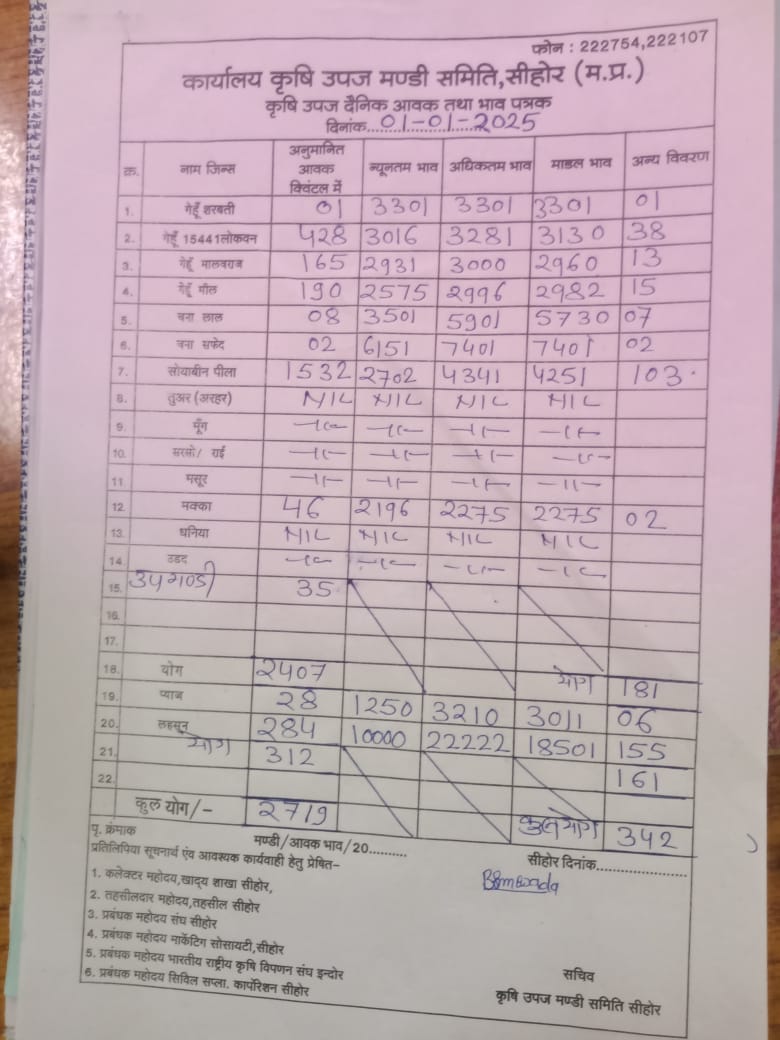 फोन : 222754,222107
कार्यालय कृषि उपज मण्डी समिति,सीहोर (म.प्र.)
कृषि उपज दैनिक आवक तथा भाव पत्रक
दिनांक....01-01-2025
क्र. नाम जिन्स अनुमानित आवक क्विंटल में न्यूनतम भाव अधिकतम भाव माडल भाव अन्य विवरण
1. गेहूँ शरबती 01 3301 3301 3301 01
2. गेहूँ 15441लोकवन 428 3016 3281 3130 38
3. गेहूँ मालवराज 165 2931 3000 2960 13
4. गेहूँ मील 190 2575 2996 2982 15
5. चना लाल 08 3501 5901 5730 07
6. चना सफेद 02 6151 7401 7401 02
7. सोयाबीन पीला 1532 2702 4341 4251 103
8. तुअर (अरहर) NIL NIL NIL NIL
9. मूँग -ıı- -ıı- -ıı- -ıı-
10. सरसो/ राई -ıı- -ıı- -ıı- -ıı-
11. मसूर -ıı- -ıı- -ıı- -ıı-
12. मक्का 46 2196 2275 2275 02
13. धनिया NIL NIL NIL NIL
14. उडद -ıı- -ıı- -ıı- -ıı-
15. उपमण्डी 35
16.
17.
18. योग 2407 योग 181
19. प्याज 28 1250 3210 3011 06
20. लहसून 284 10000 22222 18501 155
21. योग 312 161
22.
कुल योग/- 2719 कुल योग 342
पृ. क्रंमाक मण्डी/आवक भाव/20.......... सीहोर दिनांक......................
प्रतिलिपिया सूचनार्थ एंव आवश्यक कार्यवाही हेतु प्रेषित–
1. कलेक्टर महोदय,खाद्य शाखा सीहोर,
2. तहसीलदार महोदय,तहसील सीहोर
3. प्रबंधक महोदय संघ सीहोर
4. प्रबंधक महोदय मार्केटिग सोसायटी,सीहोर
5. प्रबंधक महोदय भारतीय राष्ट्रीय कृषि विपणन संघ इन्दोर
6. प्रबंधक महोदय सिविल सप्ला. कार्पोरेशन सीहोर
सचिव
कृषि उपज मण्डी समिति सीहोर